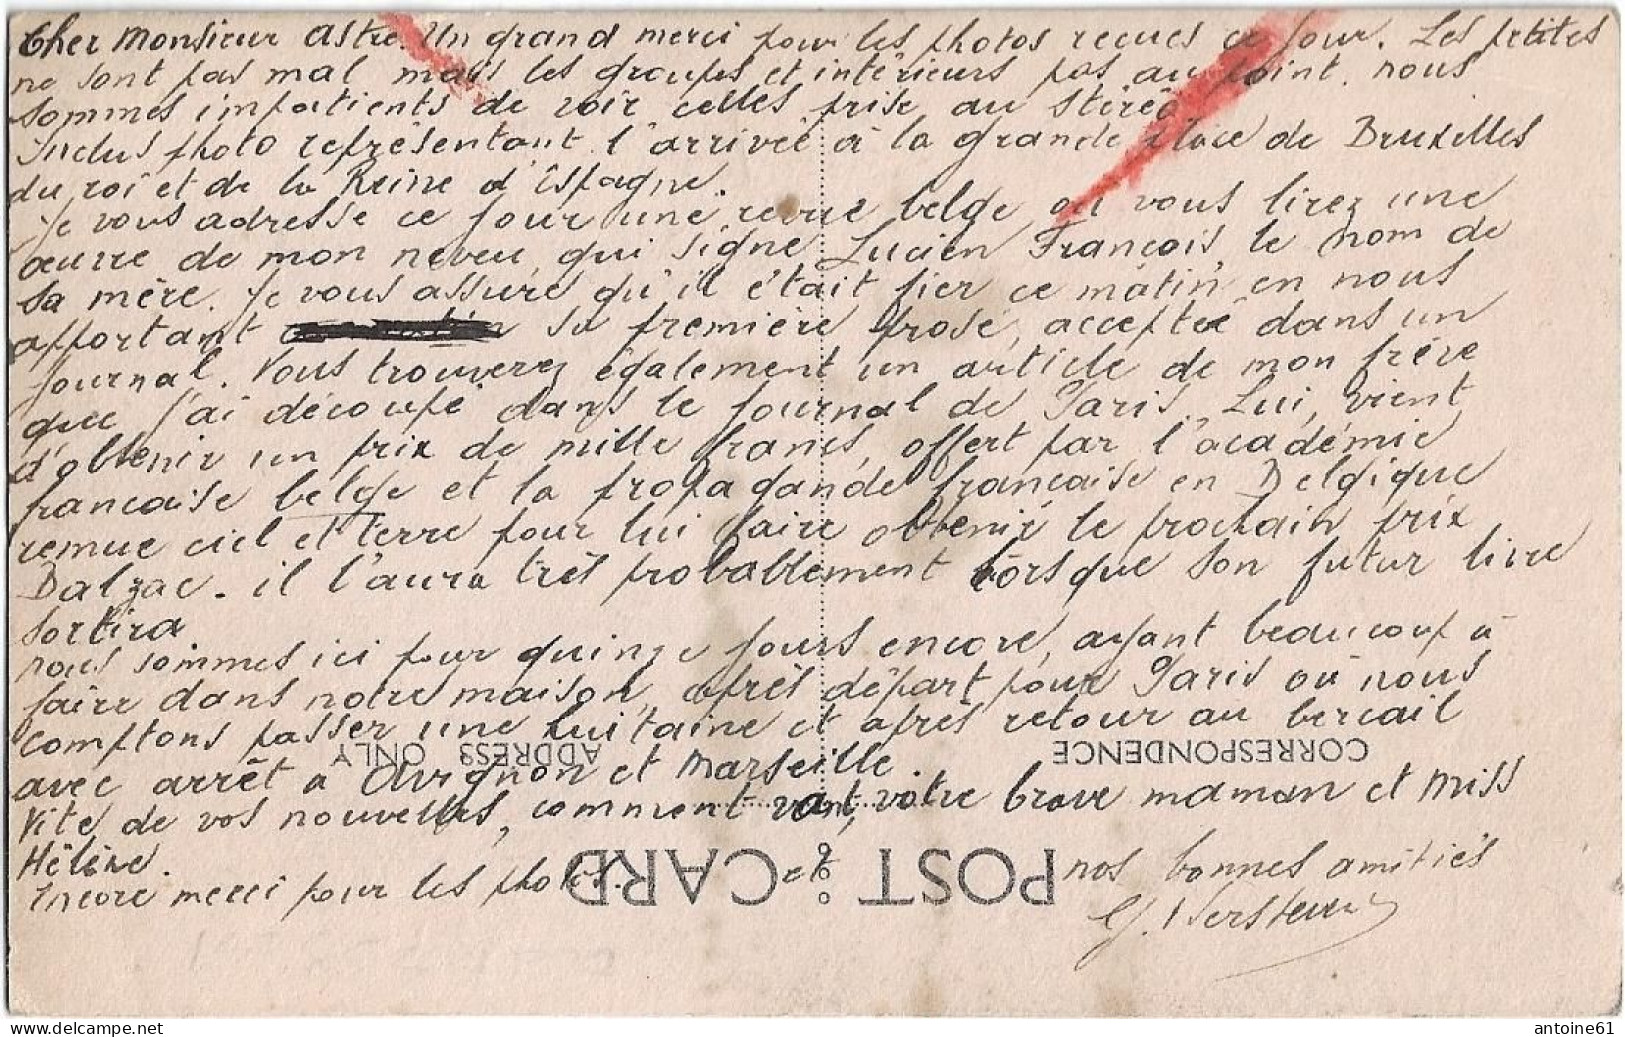 Cher Monsieur Astre. Un grand merci pour les photos recues ce jour. Les petites
ne sont pas mal mais les groupes et intérieurs pas au point. nous
sommes impatients de voir celles prise au stéréo
Inclus photo représentant l'arrivée à la grande place de Bruxelles
du roi et de la Reine d'Espagne.
Je vous adresse ce jour une revue belge où vous lirez une
œuvre de mon neveu, qui signe Lucien François, le nom de
sa mère. Je vous assure qu'il était fier ce matin en nous
apportant sa première prose, acceptée dans un
journal. Vous trouverez également un article de mon frère
que j'ai découpé dans le journal de Paris. Lui, vient
d'obtenir un prix de mille francs, offert par l'académie
francaise belge et la propagande francaise en Belgique
remue ciel et terre pour lui faire obtenir le prochain prix
Balzac. il l'aura très probablement lorsque son futur livre
sortira
nous sommes ici pour quinze jours encore, ayant beaucoup à
faire dans notre maison, après départ pour Paris où nous
comptons passer une huitaine et après retour au bercail
ADDRESS ONLY
CORRESPONDENCE
avec arrêt à Avignon et Marseille.
Vite de vos nouvelles, comment vont votre brave maman et Miss
Hélène.
Encore merci pour les photos. et nos bonnes amitiés
POST CARD
antoine61